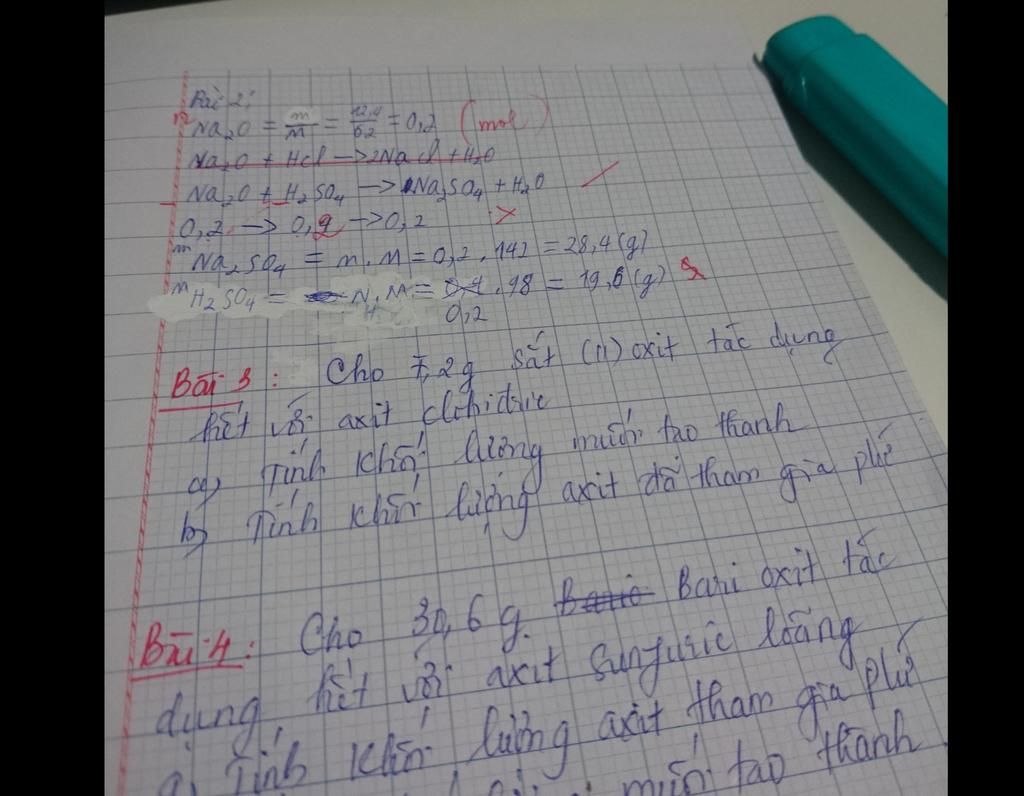 Bài 2:
n Na2O = m/M = 12,4/62 = 0,2 (mol)
Na2O + HCl -> 2NaCl + H2O
Na2O + H2SO4 -> Na2SO4 + H2O
0,2 -> 0,2 -> 0,2
m Na2SO4 = n.M = 0,2.142 = 28,4(g)
m H2SO4 = N.M = 0,4.98 = 19,6(g)
0,2
Bài 3: Cho 7,2g sắt (II) oxit tác dụng
hết với axit clohidric
a) Tính khối lượng muối tạo thanh
b) Tính khối lượng axit đã tham gia phứ
Bài 4: Cho 30,6g. Bari oxit tác
dụng hết với axit sunfuric loãng
a) Tính khối lượng axit tham gia phứ
muối tạo thành